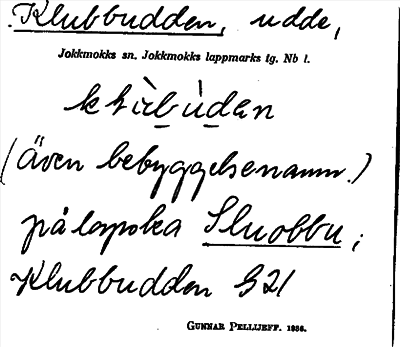 Klubbudden, udde,
Jokkmokks sn. Jokkmokks lappmarks tg. Nb l.
(Även bebyggelsenamn.)
på lapska Sluobbu;
Klubbudden G21
GUNNAR PELLIJEFF. 1936.